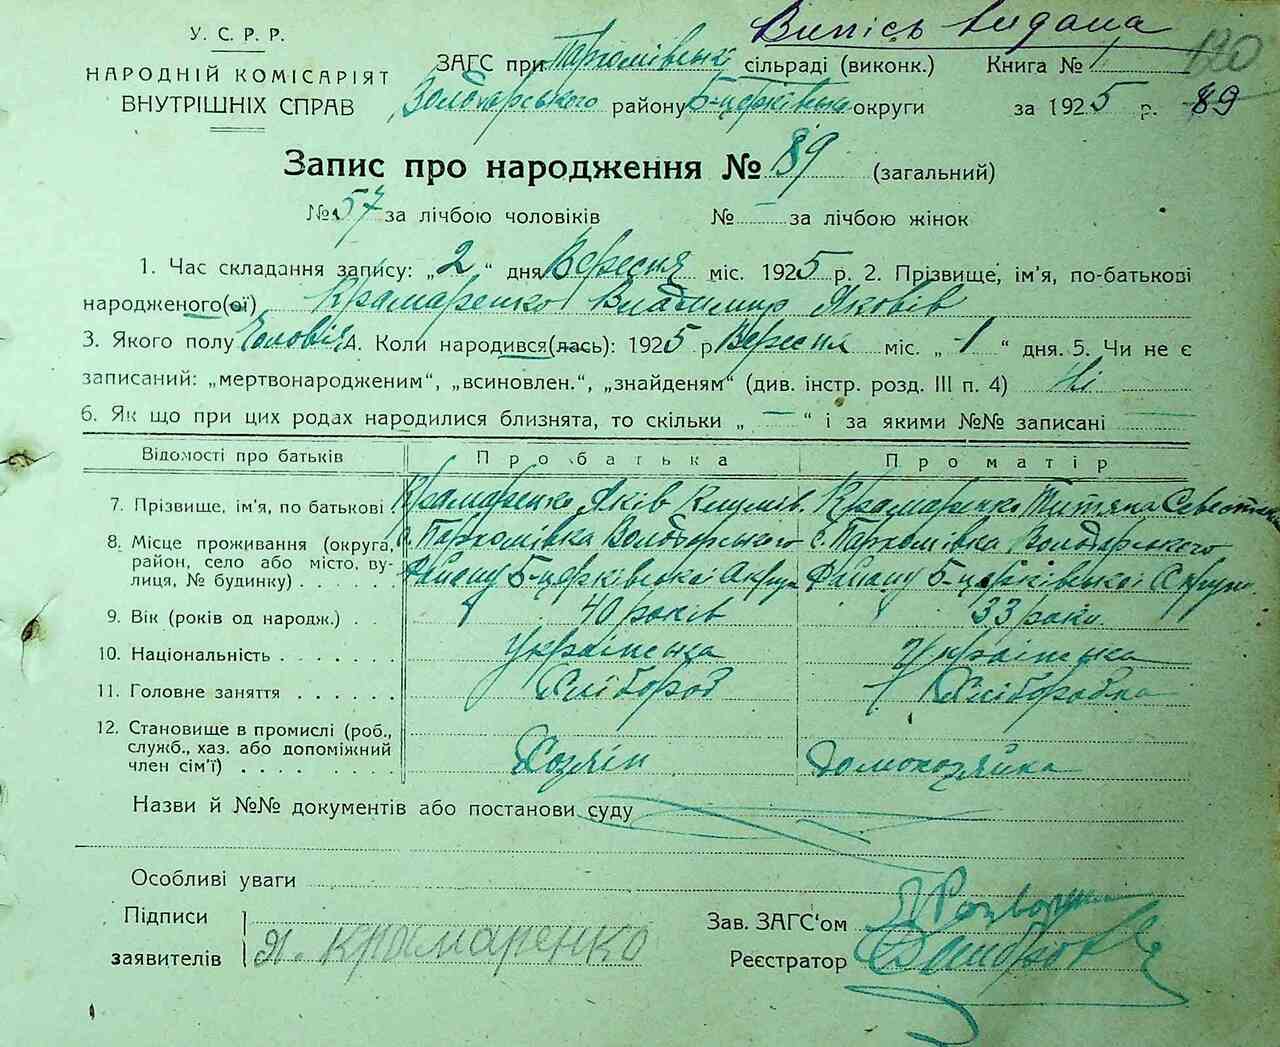 Випісь видана
У. С. Р. Р.
НАРОДНІЙ КОМІСАРІЯТ
ВНУТРІШНІХ СПРАВ
ЗАГС при Пархомівські сільраді (виконк.) Книга № 1 120
Володарського району Б-церківська округи за 1925 р. 89
Запис про народження № 89 (загальний)
№ 57 за лічбою чоловіків № — за лічбою жінок
1. Час складання запису: „2“ дня Вересня міс. 1925 р. 2. Прізвище, ім'я, по-батькові
народженого(ої) Крамаренко Владимир Яковів
3. Якого полу Чоловіч 4. Коли народився(лась): 1925 р Вересня міс. „1“ дня. 5. Чи не є
записаний: „мертвонародженим“, „всиновлен.“, „знайденям“ (див. інстр. розд. III п. 4) Ні
6. Як що при цих родах народилися близнята, то скільки „ — “ і за якими №№ записані —
Відомості про батьків Про батька Про матір
7. Прізвище, ім'я, по батькові Крамаренко Яків Крамаренко Титяна
8. Місце проживання (округа, район, село або місто, вулиця, № будинку) с. Пархомівка Володарського с. Пархомівка Володарського
Району Б-церківської Округи Району Б-церківської Округи
9. Вік (років од народж.) 40 років 33 роки
10. Національність Українська Українська
11. Головне заняття Хлібороб Хліборобка
12. Становище в промислі (роб., служб., хаз. або допоміжний член сім'ї) Хозяїн Домохозяйка
Назви й №№ документів або постанови суду
Особливі уваги
Підписи
заявителів Я. Крамаренко
Зав. ЗАГС'ом
Реєстратор